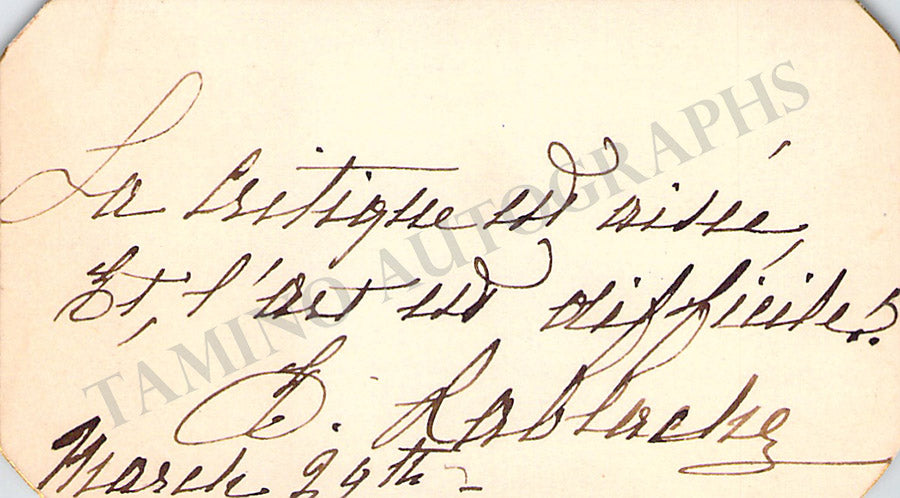 La Critique est aisée,
Et, l'art est difficile!
E. Lablache
March 29th
TAMINO AUTOGRAPHS